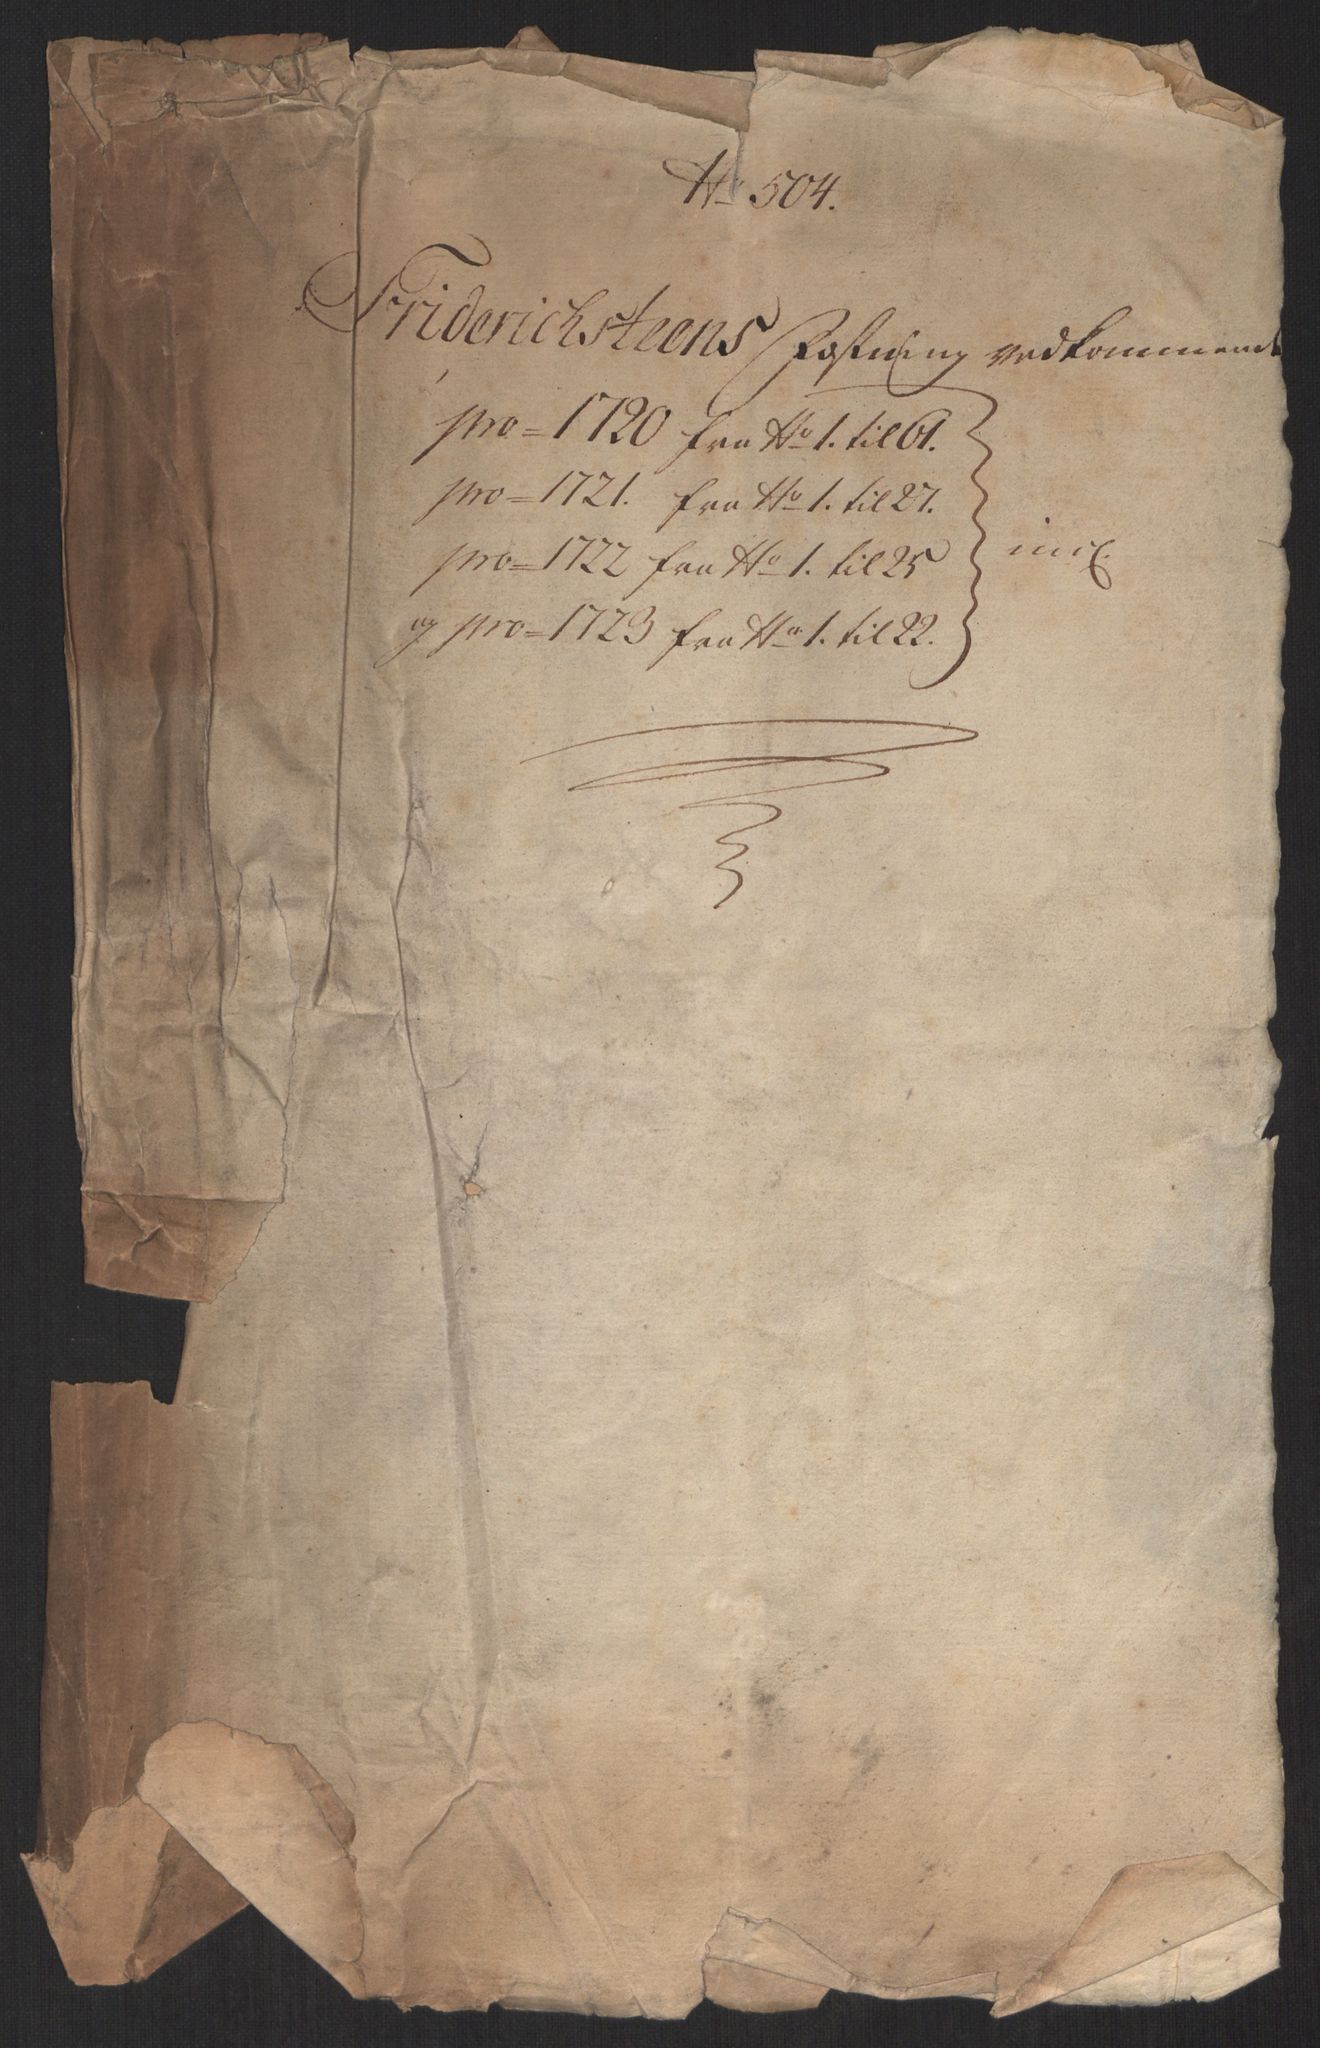 No 504.
Friderichsteens Fæstning vedkommende
pro = 1720 fra No 1. til 61.
pro = 1721. fra No 1. til 27.
pro = 1722 fra No 1. til 25
og pro = 1723 fra No 1. til 22.
incl.